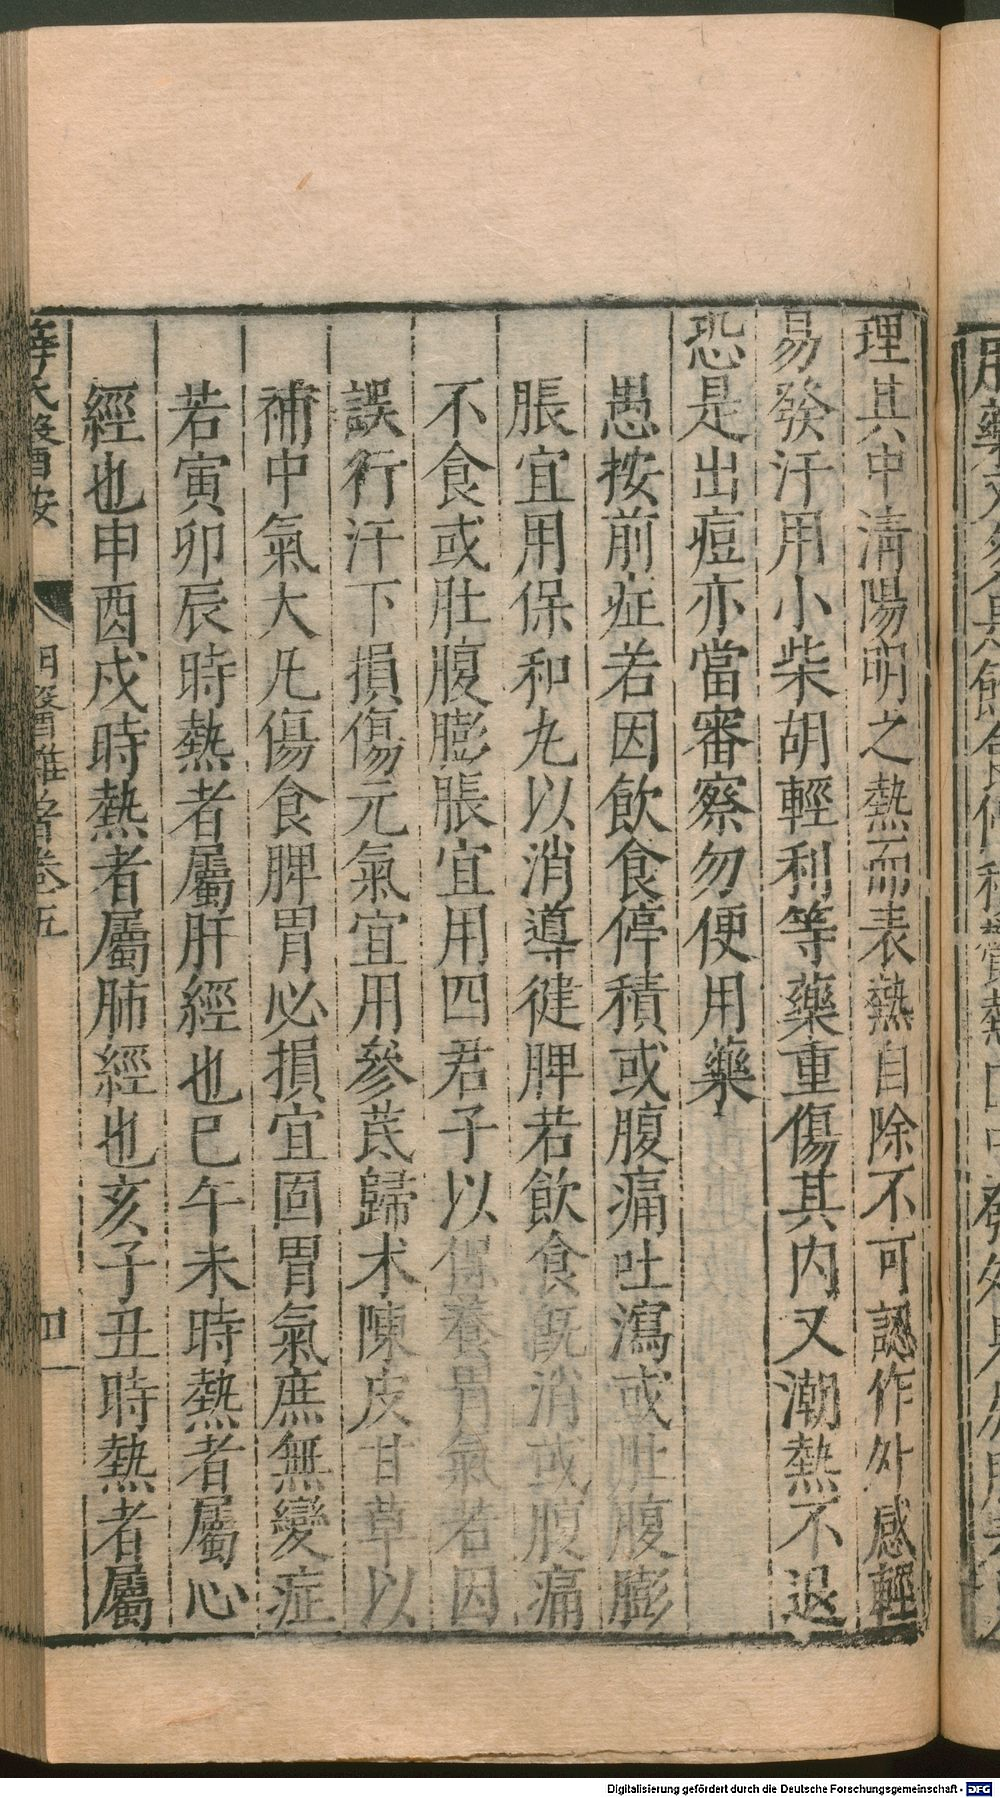 理其中淸陽明之熱而表熱自除不可認作外感輕
易發汗用小柴胡輕利等藥重傷其內又潮熱不退
恐是出痘亦當審察勿便用藥
愚按前症若因飮食停積或腹痛吐瀉或肚腹膨
脹宜用保和丸以消導健脾若飮食旣消或腹痛
不食或肚腹膨脹宜用四君子以保養胃氣若因
誤行汗下損傷元氣宜用參芪歸术陳皮甘草以
補中氣大凡傷食脾胃必損宜固胃氣庶無變症
若寅卯辰時熱者屬肝經也巳午未時熱者屬心
經也申酉戌時熱者屬肺經也亥子丑時熱者屬
薛氏醫按 明醫雜著卷五 四
Digitalisierung gefördert durch die Deutsche Forschungsgemeinschaft - DFG